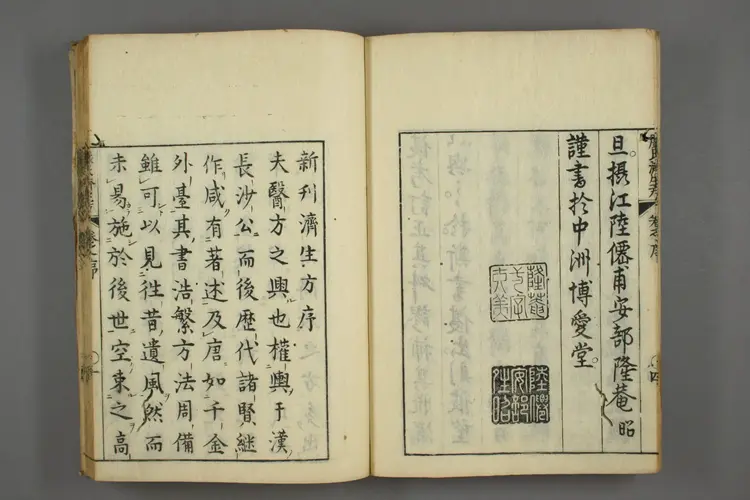 旦。摂江陸僊甫安部隆菴昭
謹書扵中洲博愛堂。
新刊濟生方序
夫醫方之興也權輿于漢
長沙公而後歴代諸賢継
作咸有著述及唐如千金
外臺其書浩繁方法周備
雖可以見徃昔遺風然而
未易施於後世空束之高